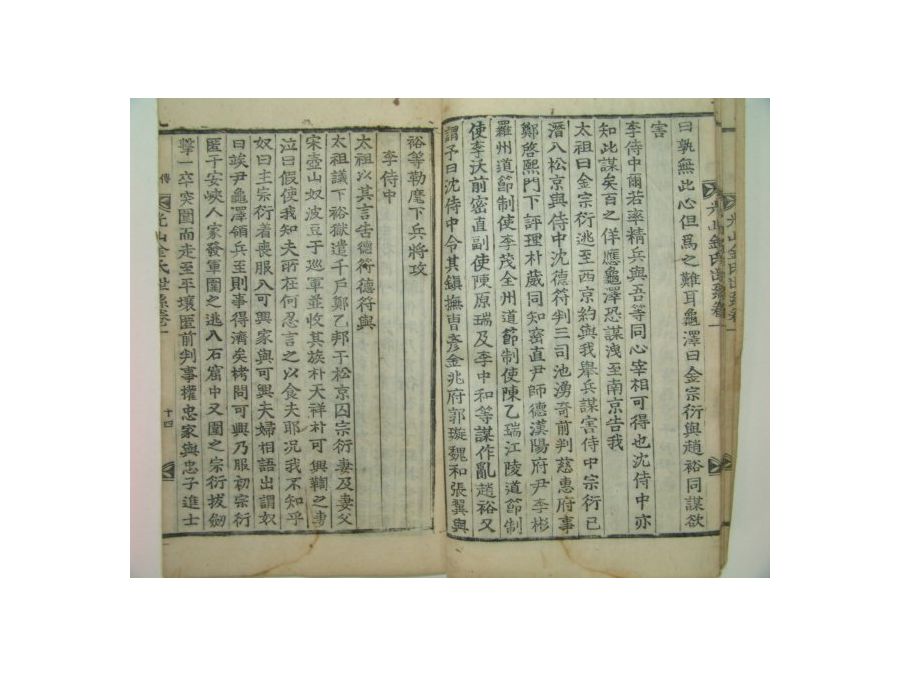 曰孰無此心但爲之難耳龜澤曰金宗衍與趙裕同謀欲
害
李侍中爾若率精兵與吾等同心宰相可得也沈侍中亦
知此謀矣百之佯應龜澤恐謀洩至南京告我
太祖曰金宗衍逃至西京約與我擧兵謀害侍中宗衍已
潛入松京與侍中沈德符判三司池湧奇前判慈惠府事
鄭啓熙門下評理朴葳同知密直尹師德漢陽府尹李彬
羅州道節制使李茂全州道節制使陳乙瑞江陵道節制
使李沃前密直副使陳原瑞及李中和等謀作亂趙裕又
謂予曰沈侍中令其鎭撫曺彥金兆府郭璇魏和張翼與
裕等勒麾下兵將攻
李侍中
太祖以其言告德符德符與
太祖議下裕獄遣千戶鄭乙邦于松京囚宗衍妻及妻父
宋壺山奴波豆于巡軍並收其族朴天祥朴可興鞫之妻
泣曰假使我知夫所在何忍言之以食夫耶况我不知乎
奴曰主宗衍着喪服入可興家與可興夫婦相語出謂奴
曰竢尹龜澤領兵至則事得濟矣栲問可興乃服初宗衍
匿于安峽人家發軍圍之逃入石窟中又圍之宗衍拔劒
擊一卒突圍而走至平壤匿前判事權忠家與忠子進士
傳
光山金氏世系卷一
十四
光山金氏